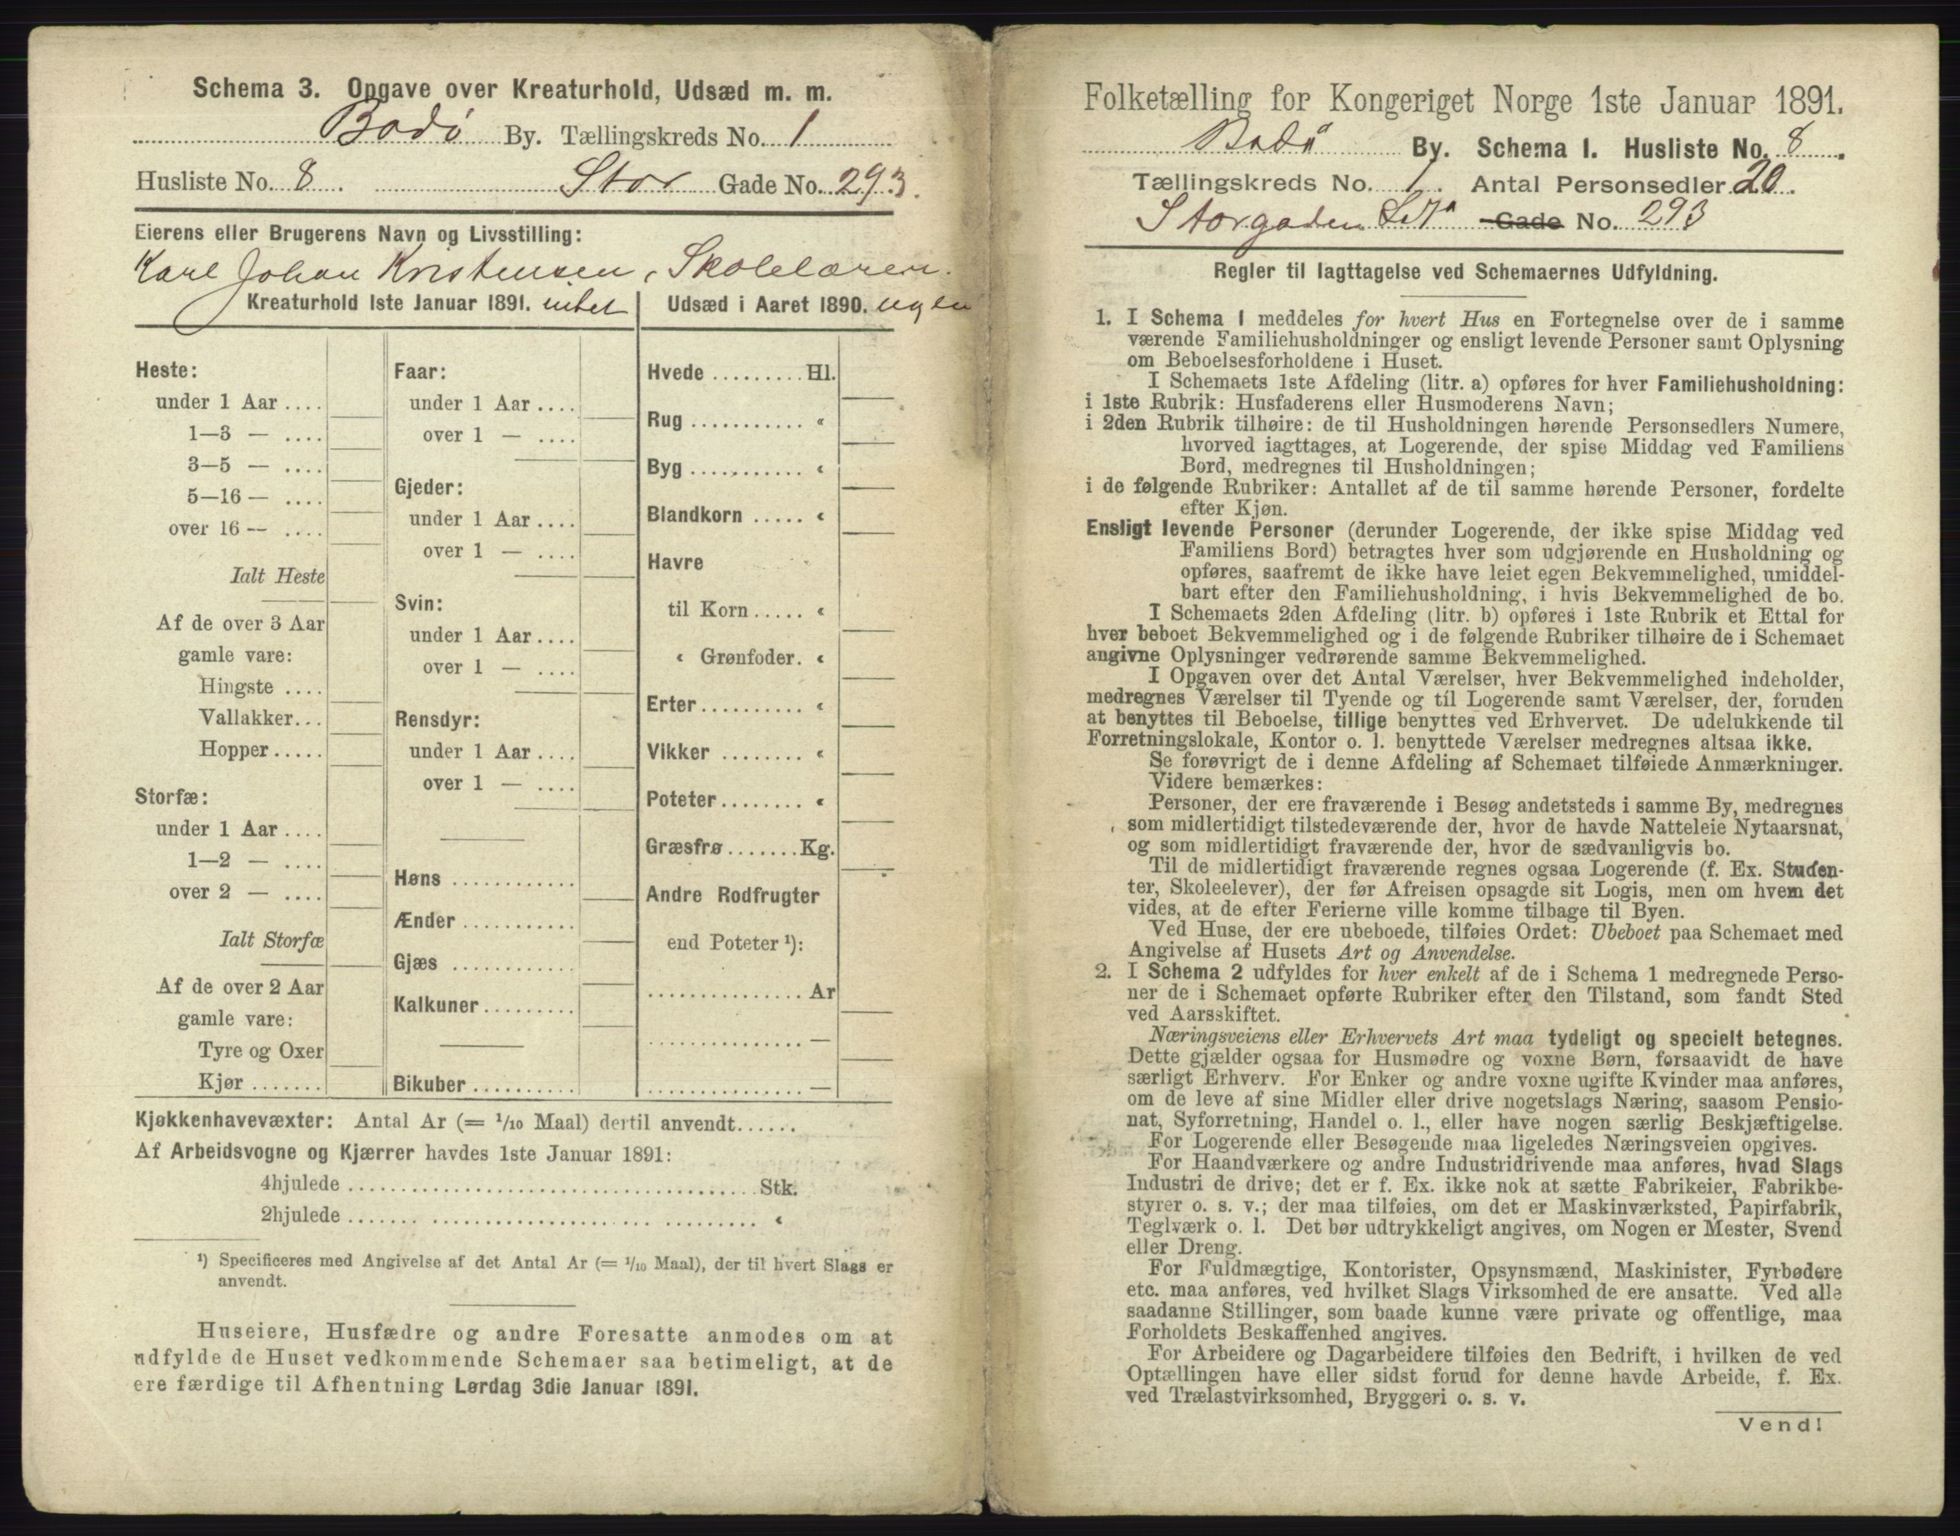 Schema 3. Opgave over Kreaturhold, Udsæd m. m.
Bodø By. Tællingskreds No. 1
Husliste No. 8. Stor Gade No. 293.
Eierens eller Brugerens Navn og Livsstilling:
Karl Johan Kristensen, Skolelærer.
Kreaturhold 1ste Januar 1891. intet
Heste:
under 1 Aar ....
1—3 — ....
3—5 — ....
5—16 — ....
over 16 — ....
Ialt Heste
Af de over 3 Aar
gamle vare:
Hingste ....
Vallakker...
Hopper.....
Storfæ:
under 1 Aar ....
1—2 — ....
over 2 — ....
Ialt Storfæ
Af de over 2 Aar
gamle vare:
Tyre og Oxer
Kjør .......
Faar:
under 1 Aar ....
over 1 — ....
Gjeder:
under 1 Aar ....
over 1 — ....
Svin:
under 1 Aar ....
over 1 — ....
Rensdyr:
under 1 Aar ....
over 1 — ....
Høns ............
Ænder ...........
Gjæs ............
Kalkuner .........
Bikuber ..........
Udsæd i Aaret 1890. ingen
Hvede ......... Hl.
Rug ........... «
Byg ........... «
Blandkorn ..... «
Havre
til Korn ..... «
« Grønfoder. «
Erter.......... «
Vikker ........ «
Poteter........ «
Græsfrø....... Kg.
Andre Rodfrugter
end Poteter ¹):
............... Ar
............... —
............... —
Kjøkkenhavevæxter: Antal Ar (= 1/10 Maal) dertil anvendt......
Af Arbeidsvogne og Kjærrer havdes 1ste Januar 1891:
4hjulede ....................................... Stk.
2hjulede ....................................... «
¹) Specificeres med Angivelse af det Antal Ar (= 1/10 Maal), der til hvert Slags er
anvendt.
Huseiere, Husfædre og andre Foresatte anmodes om at
udfylde de Huset vedkommende Schemaer saa betimeligt, at de
ere færdige til Afhentning Lørdag 3die Januar 1891.
Folketælling for Kongeriget Norge 1ste Januar 1891.
Bodø By. Schema I. Husliste No. 8.
Tællingskreds No. 1. Antal Personsedler 20.
Storgaden Gade No. 293
Regler til Iagttagelse ved Schemaernes Udfyldning.
1. I Schema I meddeles for hvert Hus en Fortegnelse over de i samme
værende Familiehusholdninger og ensligt levende Personer samt Oplysning
om Beboelsesforholdene i Huset.
I Schemaets 1ste Afdeling (litr. a) opføres for hver Familiehusholdning:
i 1ste Rubrik: Husfaderens eller Husmoderens Navn;
i 2den Rubrik tilhøire: de til Husholdningen hørende Personsedlers Numere,
hvorved iagttages, at Logerende, der spise Middag ved Familiens
Bord, medregnes til Husholdningen;
i de følgende Rubriker: Antallet af de til samme hørende Personer, fordelte
efter Kjøn.
Ensligt levende Personer (derunder Logerende, der ikke spise Middag ved
Familiens Bord) betragtes hver som udgjørende en Husholdning og
opføres, saafremt de ikke have leiet egen Bekvemmelighed, umiddel-
bart efter den Familiehusholdning, i hvis Bekvemmelighed de bo.
I Schemaets 2den Afdeling (litr. b) opføres i 1ste Rubrik et Ettal for
hver beboet Bekvemmelighed og i de følgende Rubriker tilhøire de i Schemaet
angivne Oplysninger vedrørende samme Bekvemmelighed.
I Opgaven over det Antal Værelser, hver Bekvemmelighed indeholder,
medregnes Værelser til Tyende og til Logerende samt Værelser, der, foruden
at benyttes til Beboelse, tillige benyttes ved Erhvervet. De udelukkende til
Forretningslokale, Kontor o. l. benyttede Værelser medregnes altsaa ikke.
Se forøvrigt de i denne Afdeling af Schemaet tilføiede Anmærkninger.
Videre bemærkes:
Personer, der ere fraværende i Besøg andetsteds i samme By, medregnes
som midlertidigt tilstedeværende der, hvor de havde Natteleie Nytaarsnat,
og som midlertidigt fraværende der, hvor de sædvanligvis bo.
Til de midlertidigt fraværende regnes ogsaa Logerende (f. Ex. Studen-
ter, Skoleelever), der før Afreisen opsagde sit Logis, men om hvem det
vides, at de efter Ferierne ville komme tilbage til Byen.
Ved Huse, der ere ubeboede, tilføies Ordet: Ubeboet paa Schemaet med
Angivelse af Husets Art og Anvendelse.
2. I Schema 2 udfyldes for hver enkelt af de i Schema 1 medregnede Perso-
ner de i Schemaet opførte Rubriker efter den Tilstand, som fandt Sted
ved Aarsskiftet.
Næringsveiens eller Erhvervets Art maa tydeligt og specielt betegnes.
Dette gjælder ogsaa for Husmødre og voxne Børn, forsaavidt de have
særligt Erhverv. For Enker og andre voxne ugifte Kvinder maa anføres,
om de leve af sine Midler eller drive nogetslags Næring, saasom Pensio-
nat, Syforretning, Handel o. l., eller have nogen særlig Beskjæftigelse.
For Logerende eller Besøgende maa ligeledes Næringsveien opgives.
For Haandværkere og andre Industridrivende maa anføres, hvad Slags
Industri de drive; det er f. Ex. ikke nok at sætte Fabrikeier, Fabrikbe-
styrer o. s. v.; der maa tilføies, om det er Maskinværksted, Papirfabrik,
Teglværk o. l. Det bør udtrykkeligt angives, om Nogen er Mester, Svend
eller Dreng.
For Fuldmægtige, Kontorister, Opsynsmænd, Maskinister, Fyrbødere
etc. maa anføres, ved hvilket Slags Virksomhed de ere ansatte. Ved alle
saadanne Stillinger, som baade kunne være private og offentlige, maa
Forholdets Beskaffenhed angives.
For Arbeidere og Dagarbeidere tilføies den Bedrift, i hvilken de ved
Optællingen have eller sidst forud for denne havde Arbeide, f. Ex.
ved Trælastvirksomhed, Bryggeri o. s. v.
Vend!